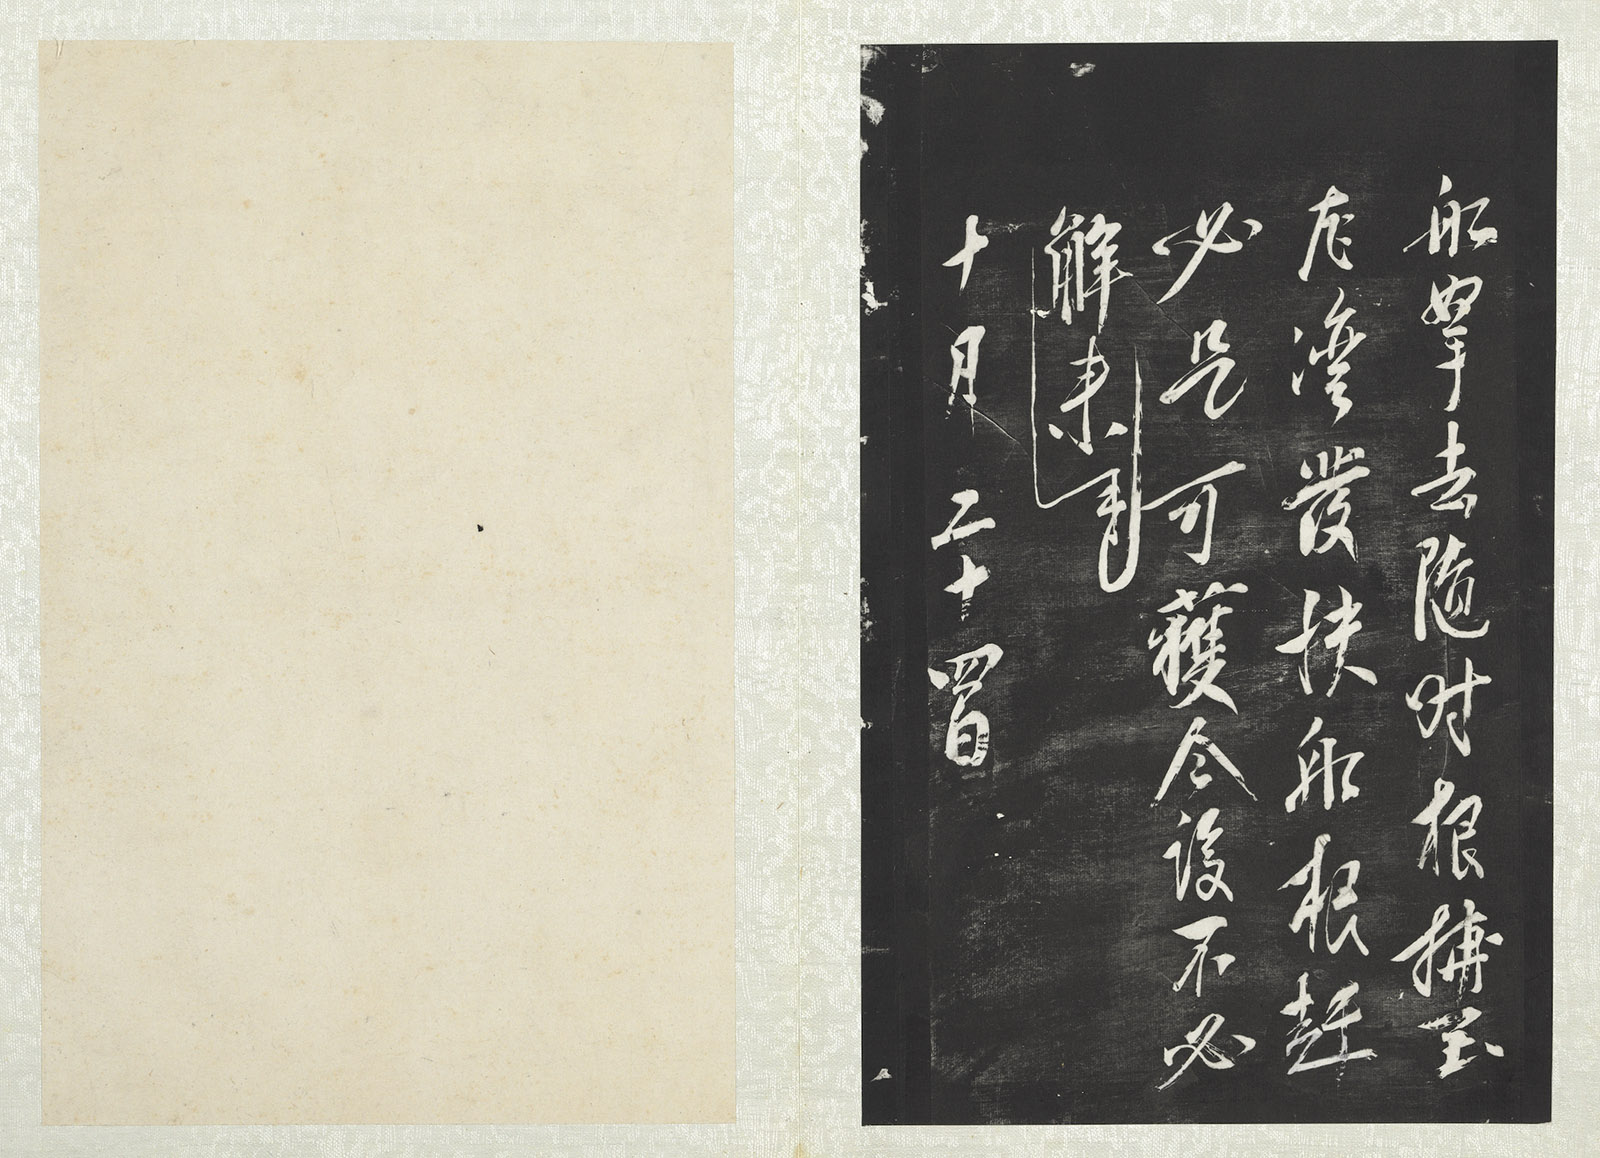 船牽去隨時根捕至
灣發扶船根趕
必是可獲令設不必
解來
十月二十四日